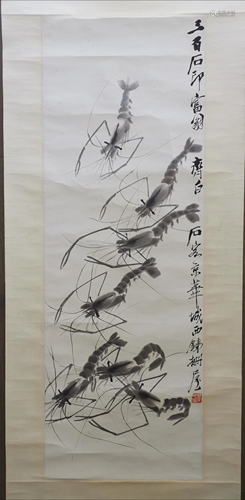 三百石印富翁 齊白
石客京華城西鐵柵屋